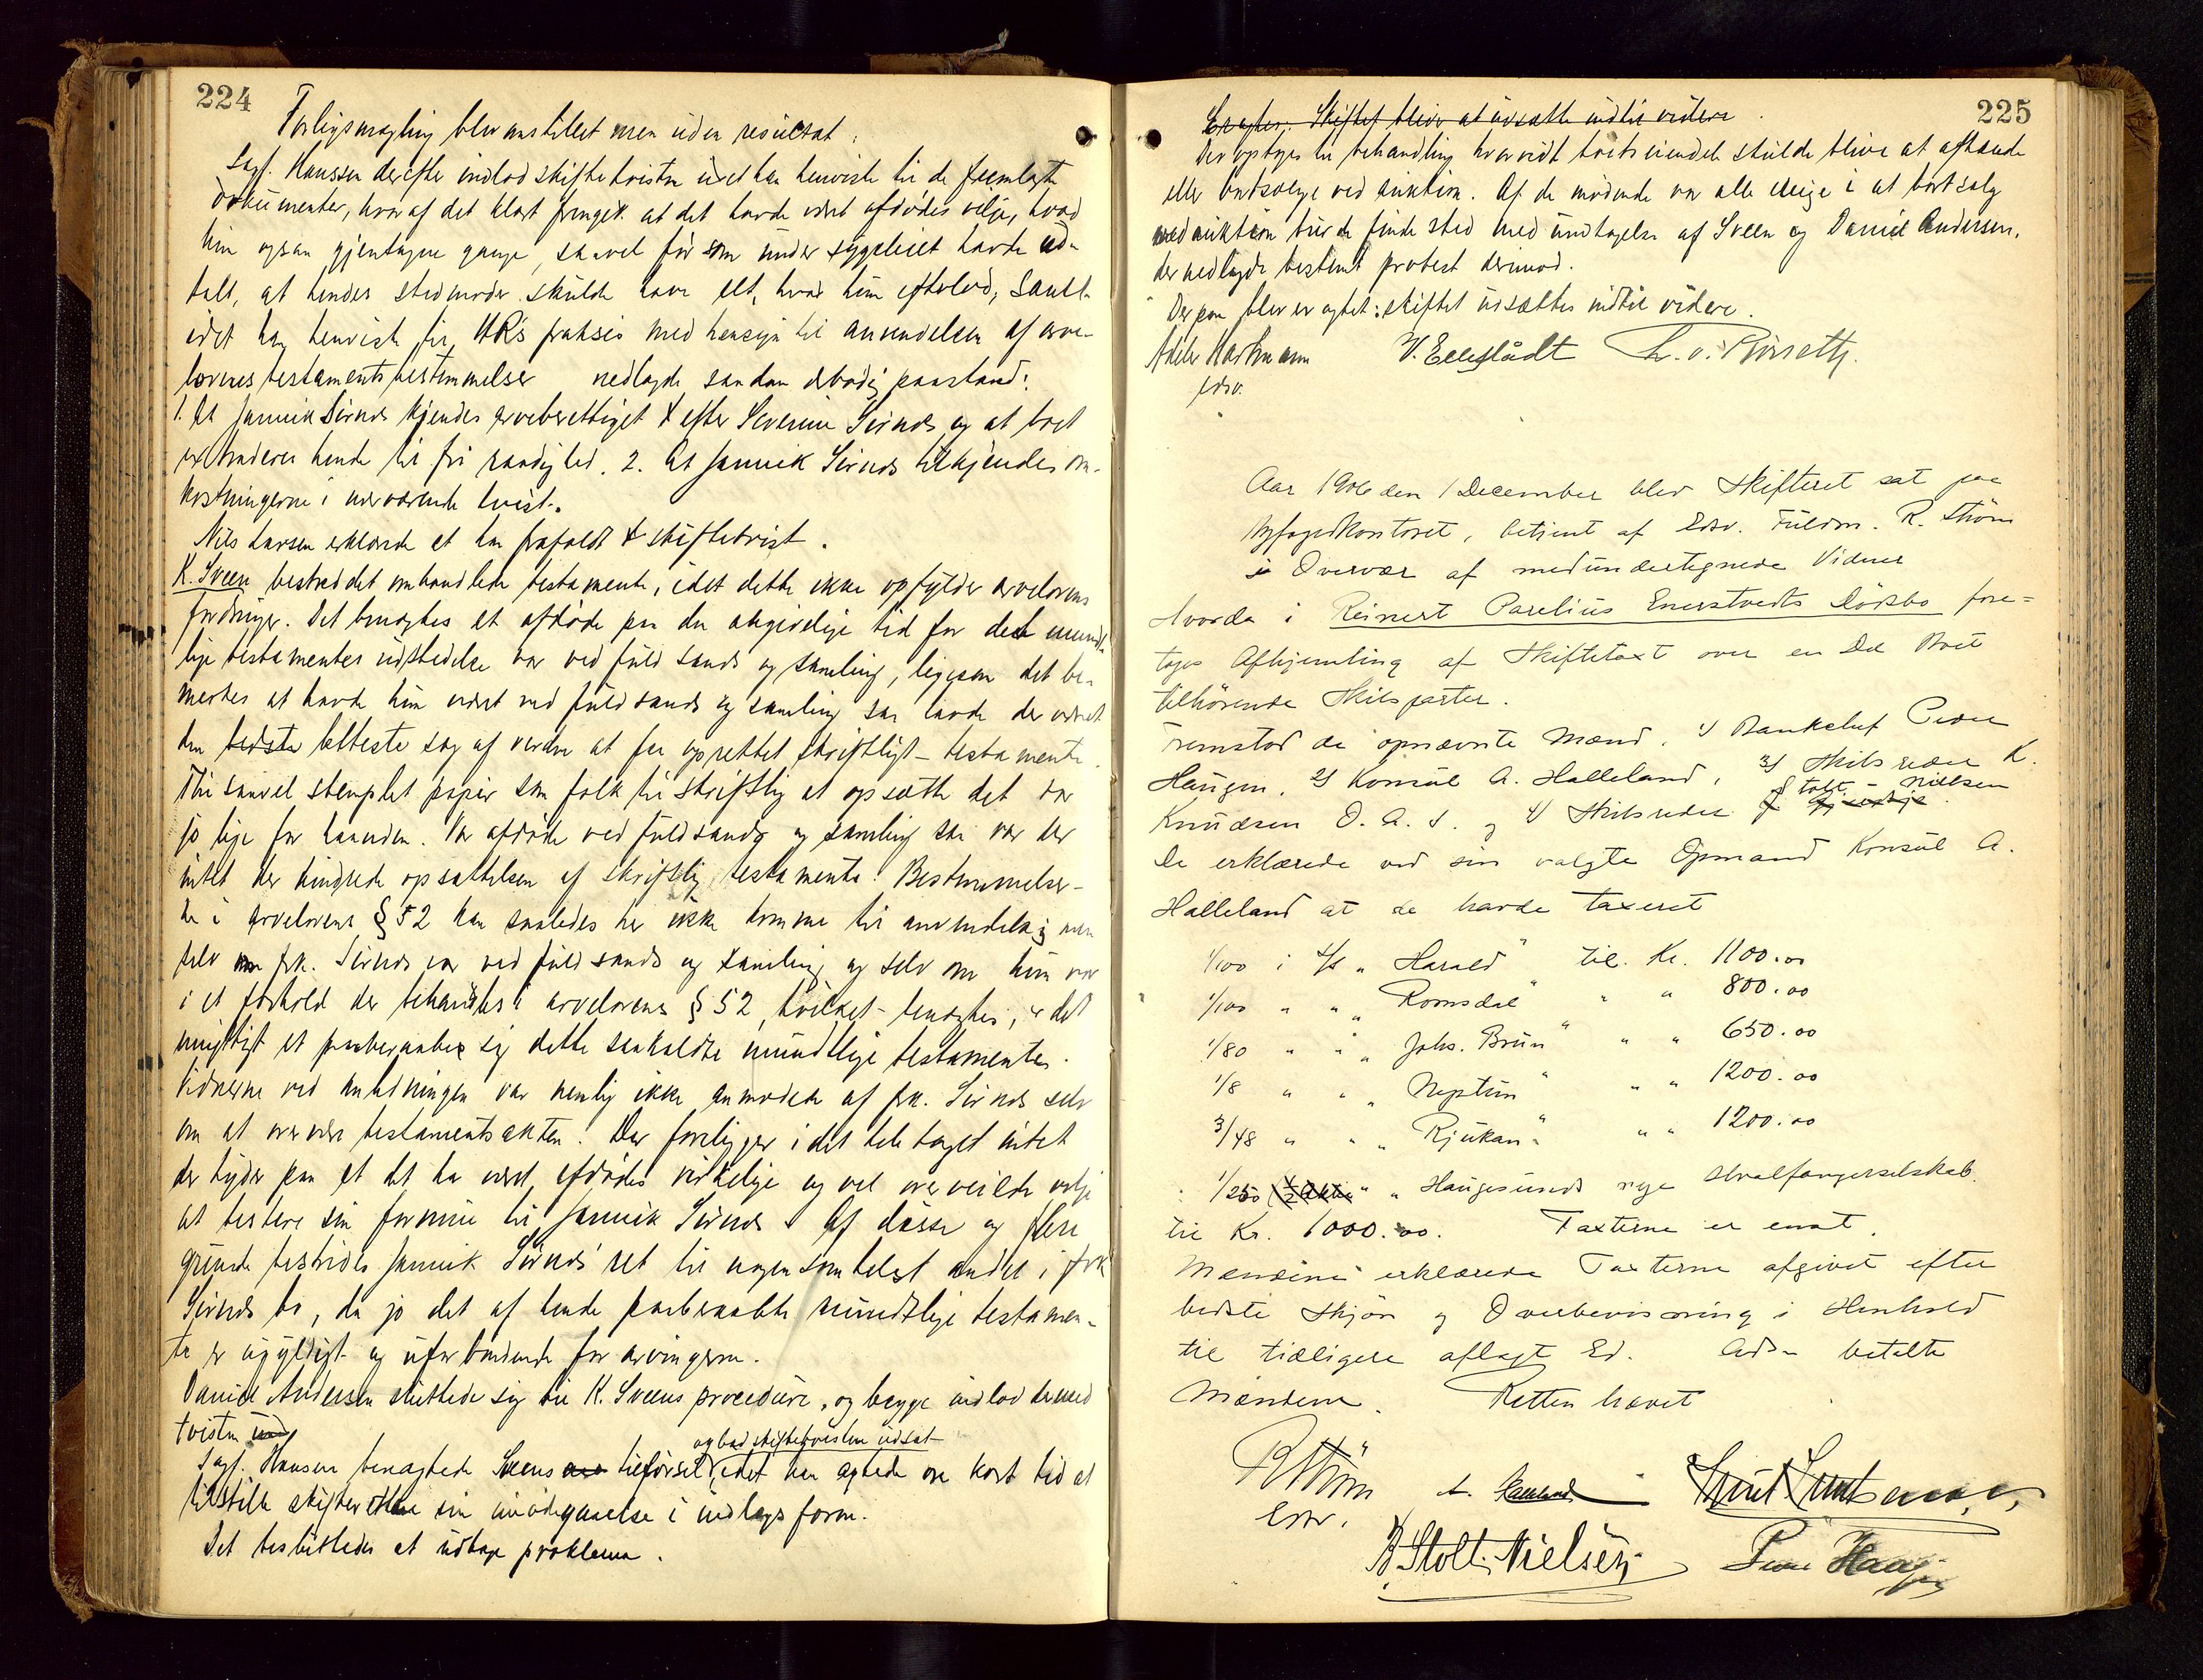 224
Forligsmægling blev anstillet men uden resultat.
Sagf. Hanssen derefter indlod skiftetvisten idet han henviste til de fremlagte
dokumenter, hvoraf det klart fremgik at det havde været afdødes vilje, hvad
hun ogsaa gjentagne gange, saavel før som under sygeleiet havde ud-
talt, at hendes stedmoder skulde have alt, hvad hun efterlod, samt
idet han henviste til HRs praksis med hensyn til anvendelsen af arve-
lovens testamentsbestemmelser nedlagde saadan paastand:
1. At Jannik Sirnes kjendes arveberettiget efter Severine Sirnes og at boet
extraderes hende til fri raadighed. 2. At Jannik Sirnes tilkjendes om-
kostningerne i nærværende tvist.
Nils Larsen erklærede at han frafaldt skiftetvist.
K. Sveen bestred det omhandlede testamente, idet dette ikke opfylder arvelovens
fordringer. Det benægtes at afdøde paa den angivelige tid for det mundt-
lige testamentes udstedelse var ved fuld sands og samling, ligesom det be-
merkes at havde hun været ved fuld sands og samling saa havde der været
den bedste letteste sag af verden at faa oprettet skriftligt testamente.
Thi saavel stemplet papir som folk til skriftlig at opsætte det var
jo lige for haanden. Var afdøde ved fuld sands og samling saa var der
intet der hindrede opsættelsen af skriftlig testamente. Bestemmelser-
ne i arvelovens § 52 kan saaledes her ikke komme til anvendelse men
selv om frk. Sirnes var ved fuld sands og samling og selv om hun var
i et forhold der behandles i arvelovens § 52, hvilket benægtes, er det
umuligt at paaberaabe sig dette saakaldte mundtlige testamente.
Vidnerne ved anledningen var nemlig ikke anmodede af frk. Sirnes selv
om at overvære testamentsakten. Der foreligger i det hele taget intet
der tyder paa at det har været afdødes virkelige og vel overveiede vilje
at testere sin formue til Jannik Sirnes. Af disse og flere
grunde bestrides Jannik Sirnes' ret til nogensomhelst andel i frk
Sirnes bo, da jo det af hende paaberaabte mundtlige testamen-
te er ugyldigt og uforbindende for arvingerne.
Daniel Andersen sluttede sig til K. Sveens procedure, og begge indlod dermed
tvisten
og bad skiftetvisten udsat
Sagf. Hansen benægtede Sveens tilførsel idet han agtede om kort tid at
tilstille skifteretten sin imødegaaelse i indlægs form.
Det besluttedes at udtage proklama.
225
Eragtes: Skiftet bliver at udsætte indtil videre
Der optoges til behandling hvorvidt boets eiendele skulde blive at afhænde
eller bortsælge ved auktion. Af de mødende var alle enige i at bortsalg
ved auktion burde finde sted med undtagelse af Sveen og Daniel Andersen,
der nedlagde bestemt protest derimod.
Derpaa blev eragtet: skiftet udsættes indtil videre.
Hartmann V. Eelfstådt
edsv.
Aar 1906 den 1 December blev Skifteret sat paa
Byfogedkontoret, betjent af Edsv. Fuldm. R. Strøm
i Overvær af medundertegnede Vidner
Hvorda i Reinert Parelius Enerstvedts Dødsbo fore=
toges Afhjemling af Skiftetaxt over en Del Boet
tilhörende Skibsparter.
Fremstod de opnævnte Mænd, 1) Bankchef Peder
Haugen. 2) Konsul A. Halleland, 3) Skibsreder K.
Knudsen O. A. S. og 4) Skibsreder Stolt-Nielsen
De erklærede ved sin valgte Opmand Konsul A.
Halleland at de havde taxeret
1/100 i S/S "Harald" til Kr. 1100.00
1/100 " " "Romsdal" " " 800.00
1/80 " " "Johs. Brun" " " 650.00
1/8 " " "Neptun" " " 1200.00
3/48 " " "Rjukan" " " 1200.00
1/250 " " Haugesunds nye Hvalfangerselskab
til Kr. 1000.00. Taxterne er enst.
Mændene erklærede Taxterne afgivet efter
bedste Skjön og Overbevisning i Henhold
til tidligere aflagt Ed. betalte
Mændene. Retten hævet
RStröm A. Halleland Knut Knutsen O.A.S.
Edsv.
B Stolt-Nielsen Peder Haugen